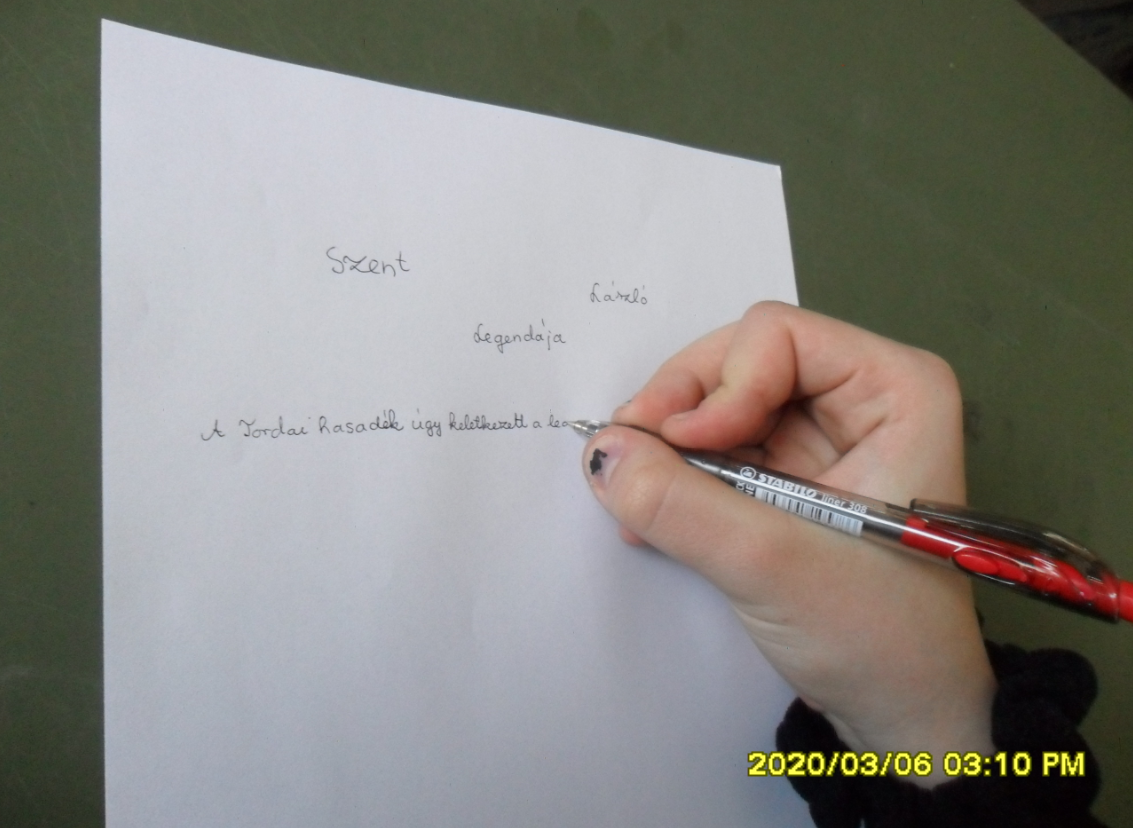 Szent
László
Legendája
A Tordai hasadék úgy keletkezett a
STABILO liner 308
2020/03/06 03:10 PM